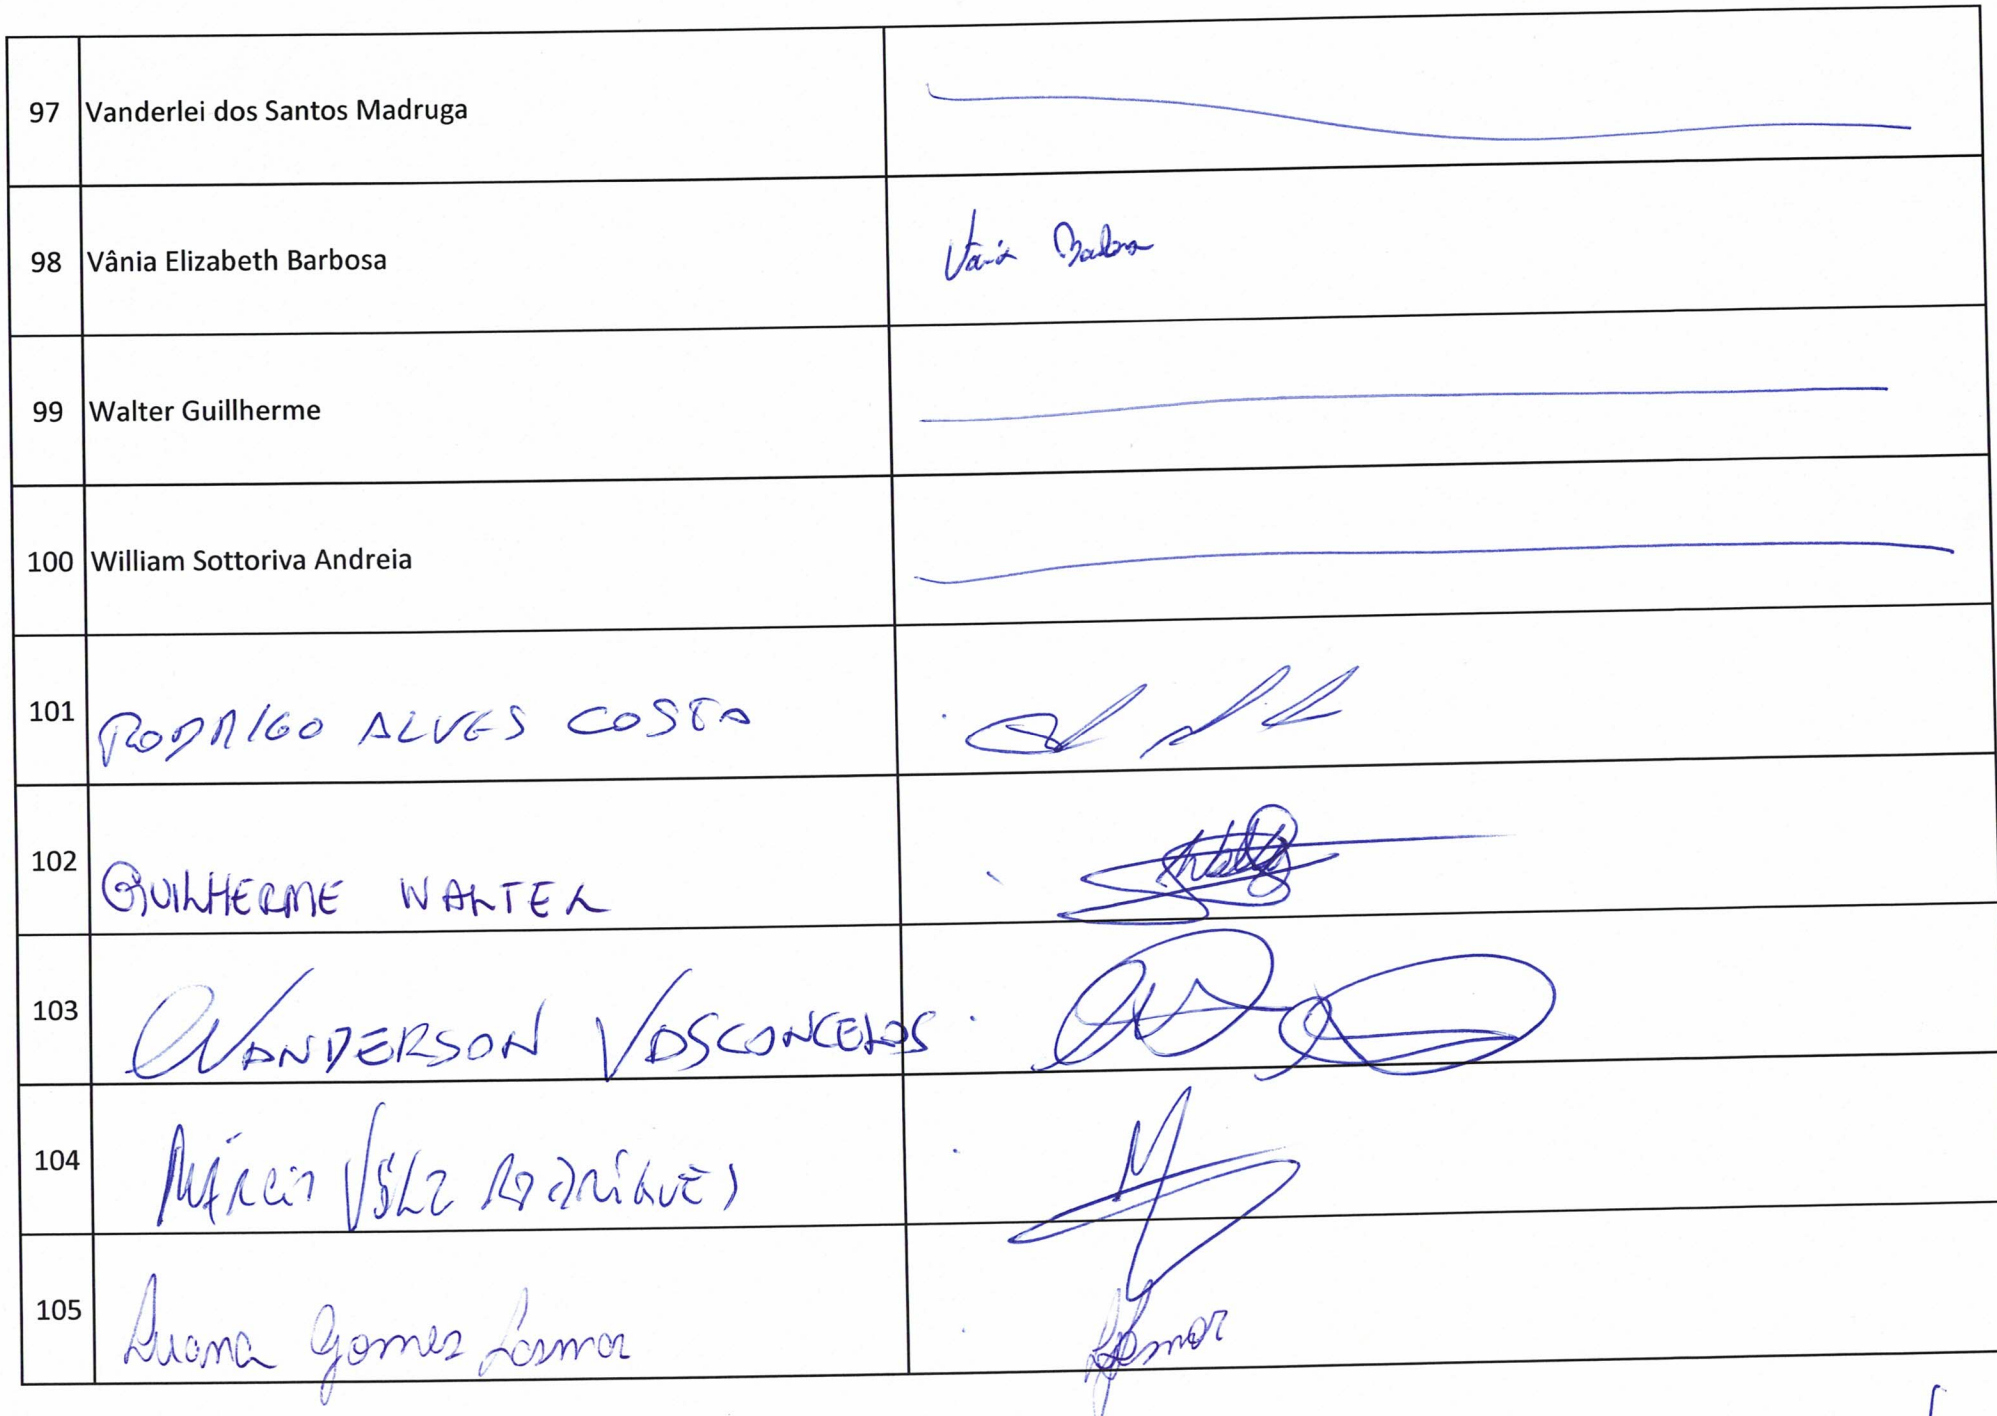 97 Vanderlei dos Santos Madruga
98 Vânia Elizabeth Barbosa Vania Barbosa
99 Walter Guillherme
100 William Sottoriva Andreia
101 RODRIGO ALVES COSTA
102 GUILHERME WALTER
103 WANDERSON VASCONCELOS
104 MÁRCIO RODRIGUES
105 Luana Gomes Losmar